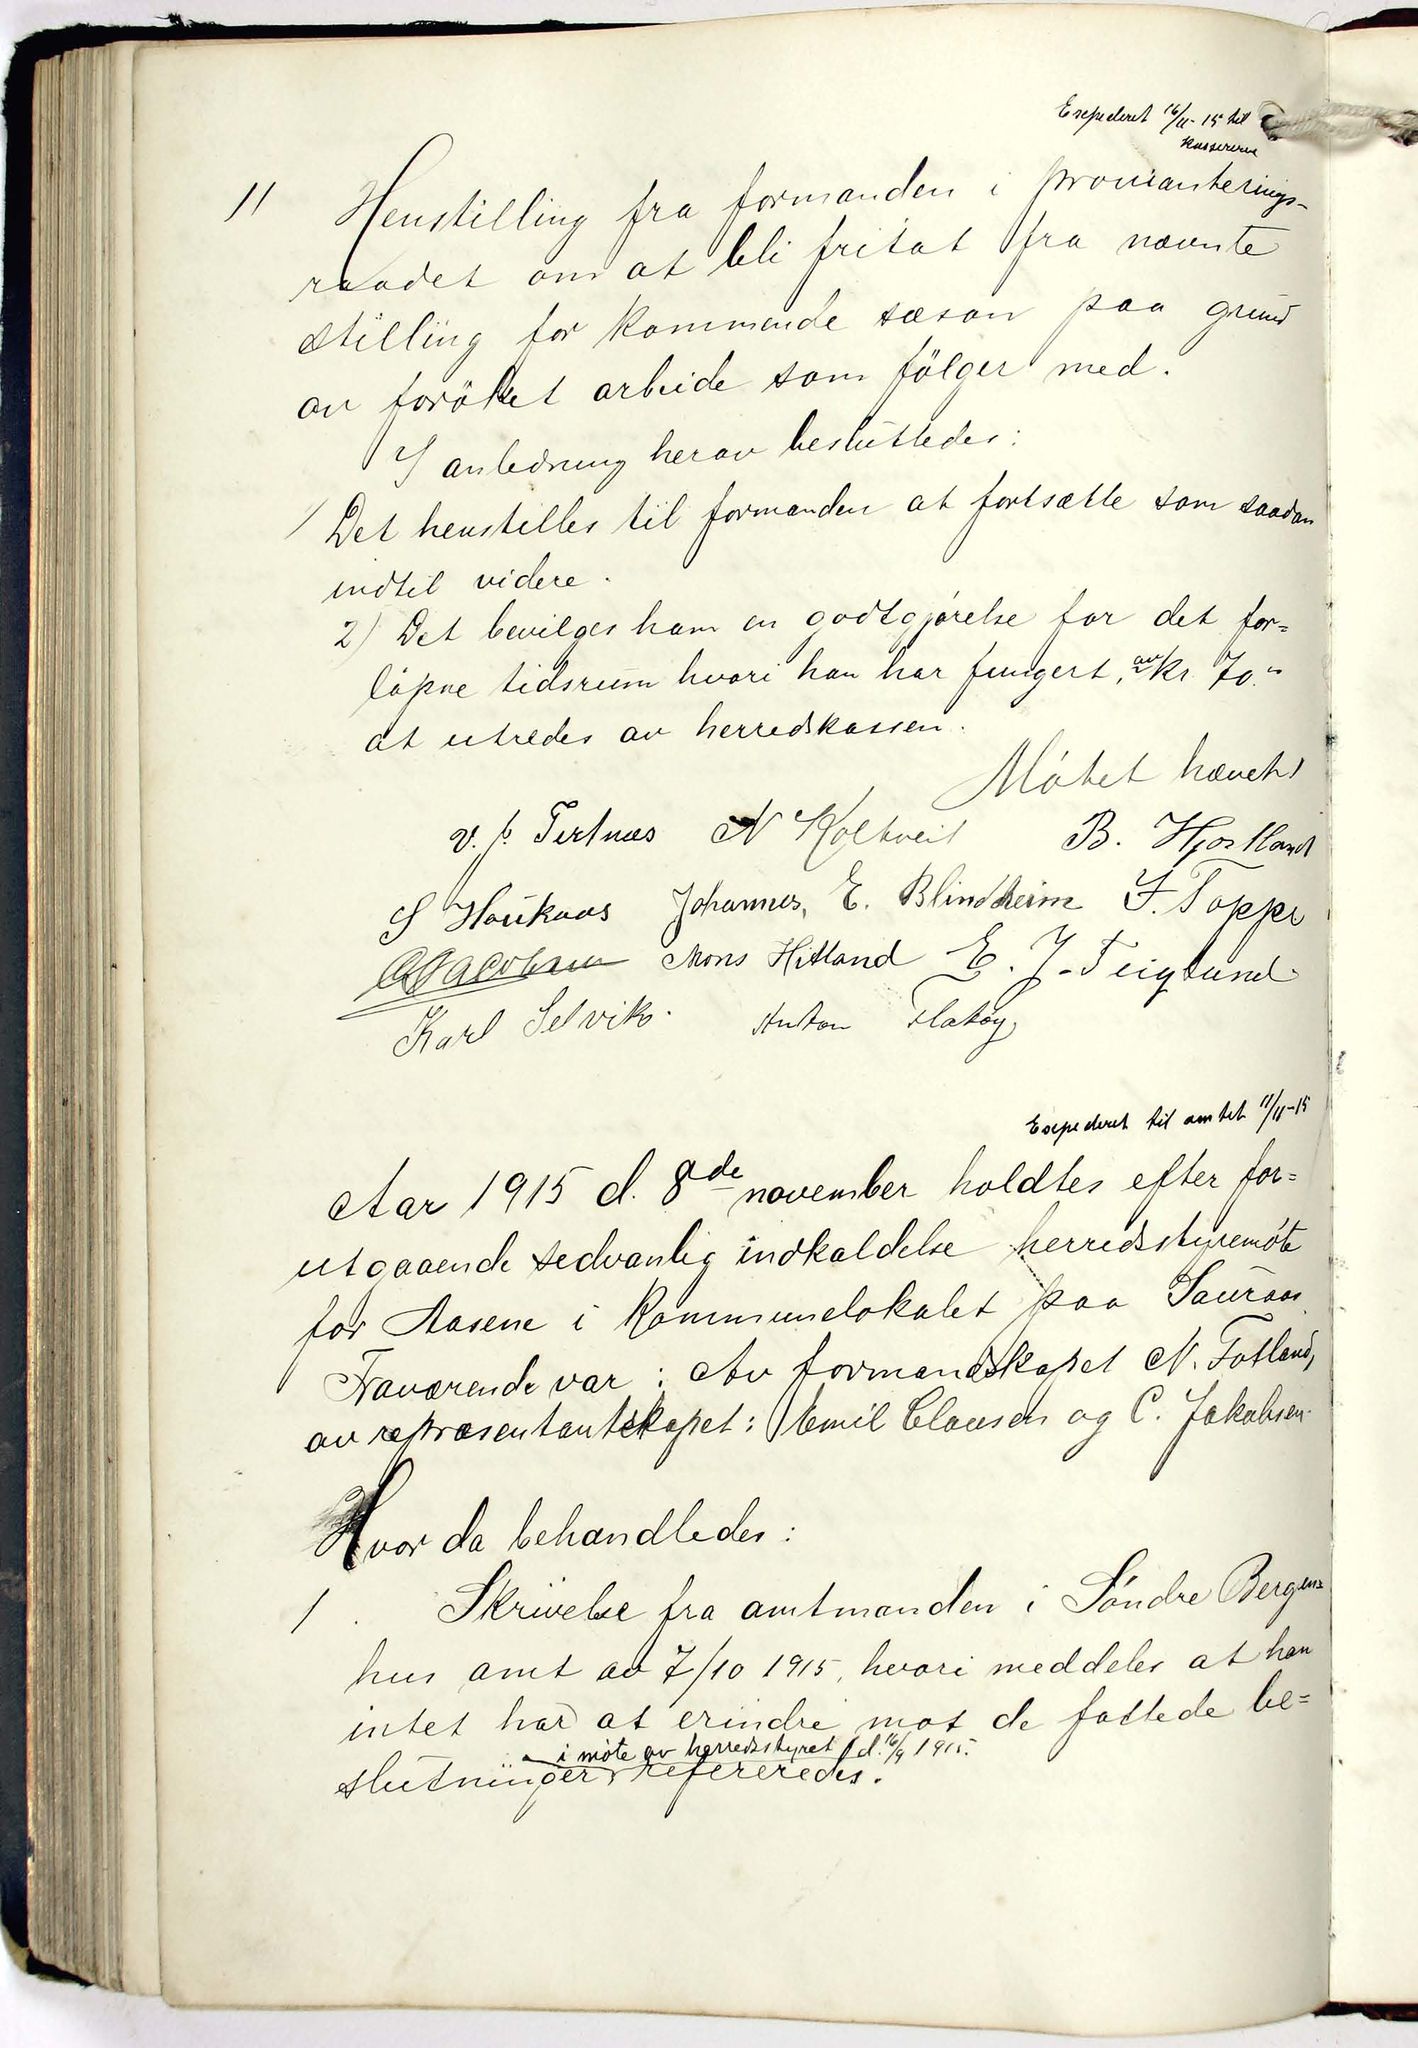 Expederet 16/11-15 til
kassereren
11 Henstilling fra formanden i provianterings-
raadet om at bli fritat fra nævnte
stilling for kommende sæson paa grund
av forøket arbeide som følger med.
I anledning herav besluttedes:
1 Det henstilles til formanden at fortsætte som saadan
indtil videre.
2) Det bevilges ham en godtgjørelse for det for=
løpne tidsrum hvori han har fungert, av kr. 70."
at utredes av herredskassen.
Møtet hævet!
N Koltveit B. Hjortland
S Haukaas Johannes, E. Blindheim F. Toppe
Mons Hitland E. J. Teiglund
Karl Selvik. Anton Flatøy,
Expederet til amtet 11/11-15
Aar 1915 d. 8de november holdtes efter for=
utgaaende sedvanlig indkaldelse herredsstyremøte
for Aasene i Kommunelokalet paa Sauraas.
Fraværende var: Av formandskapet N. Totland,
av repræsentantskapet: Emil Clausen og C. Jakobsen.
Hvor da behandledes:
1. Skrivelse fra amtmanden i Søndre Bergen=
hus amt av 7/10 1915, hvori meddeles at han
intet har at erindre mot de fattede be=
i møte av herredsstyret d. 16/9 1915.
slutninger refereredes.